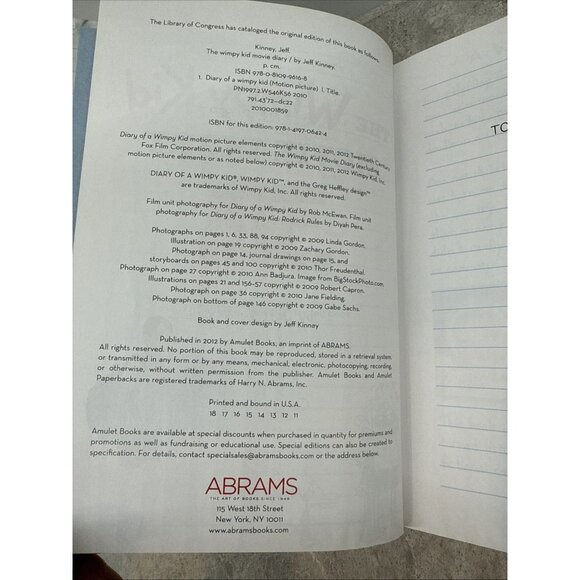 The Library of Congress has cataloged the original edition of this book as follows:
Kinney, Jeff.
The wimpy kid movie diary / by Jeff Kinney.
p. cm.
ISBN 978-0-8109-9616-8
1. Diary of a wimpy kid (Motion picture) I. Title.
PN1997.2.W546K56 2010
791.43'72—dc22
2010001859
ISBN for this edition: 978-1-4197-0642-4
Diary of a Wimpy Kid motion picture elements copyright © 2010, 2011, 2012 Twentieth Century
Fox Film Corporation. All rights reserved. The Wimpy Kid Movie Diary (excluding
motion picture elements or as noted below) copyright © 2010, 2011, 2012 Wimpy Kid, Inc.
DIARY OF A WIMPY KID®, WIMPY KID™, and the Greg Heffley design™
are trademarks of Wimpy Kid, Inc. All rights reserved.
Film unit photography for Diary of a Wimpy Kid by Rob McEwan. Film unit
photography for Diary of a Wimpy Kid: Rodrick Rules by Diyah Pera.
Photographs on pages 1, 6, 33, 88, 94 copyright © 2009 Linda Gordon.
Illustration on page 19 copyright © 2009 Zachary Gordon.
Photograph on page 14, journal drawings on page 15, and
storyboards on pages 45 and 100 copyright © 2010 Thor Freudenthal.
Photograph on page 27 copyright © 2010 Ann Badjura. Image from BigStockPhoto.com.
Illustrations on pages 21 and 156-57 copyright © 2009 Robert Capron.
Photograph on page 36 copyright © 2010 Jane Fielding.
Photograph on bottom of page 146 copyright © 2009 Gabe Sachs.
Book and cover design by Jeff Kinney
Published in 2012 by Amulet Books, an imprint of ABRAMS.
All rights reserved. No portion of this book may be reproduced, stored in a retrieval system,
or transmitted in any form or by any means, mechanical, electronic, photocopying, recording,
or otherwise, without written permission from the publisher. Amulet Books and Amulet
Paperbacks are registered trademarks of Harry N. Abrams, Inc.
Printed and bound in U.S.A.
18 17 16 15 14 13 12 11
Amulet Books are available at special discounts when purchased in quantity for premiums and
promotions as well as fundraising or educational use. Special editions can also be created to
specification. For details, contact specialsales@abramsbooks.com or the address below.
ABRAMS
THE ART OF BOOKS SINCE 1949
115 West 18th Street
New York, NY 10011
www.abramsbooks.com
TO